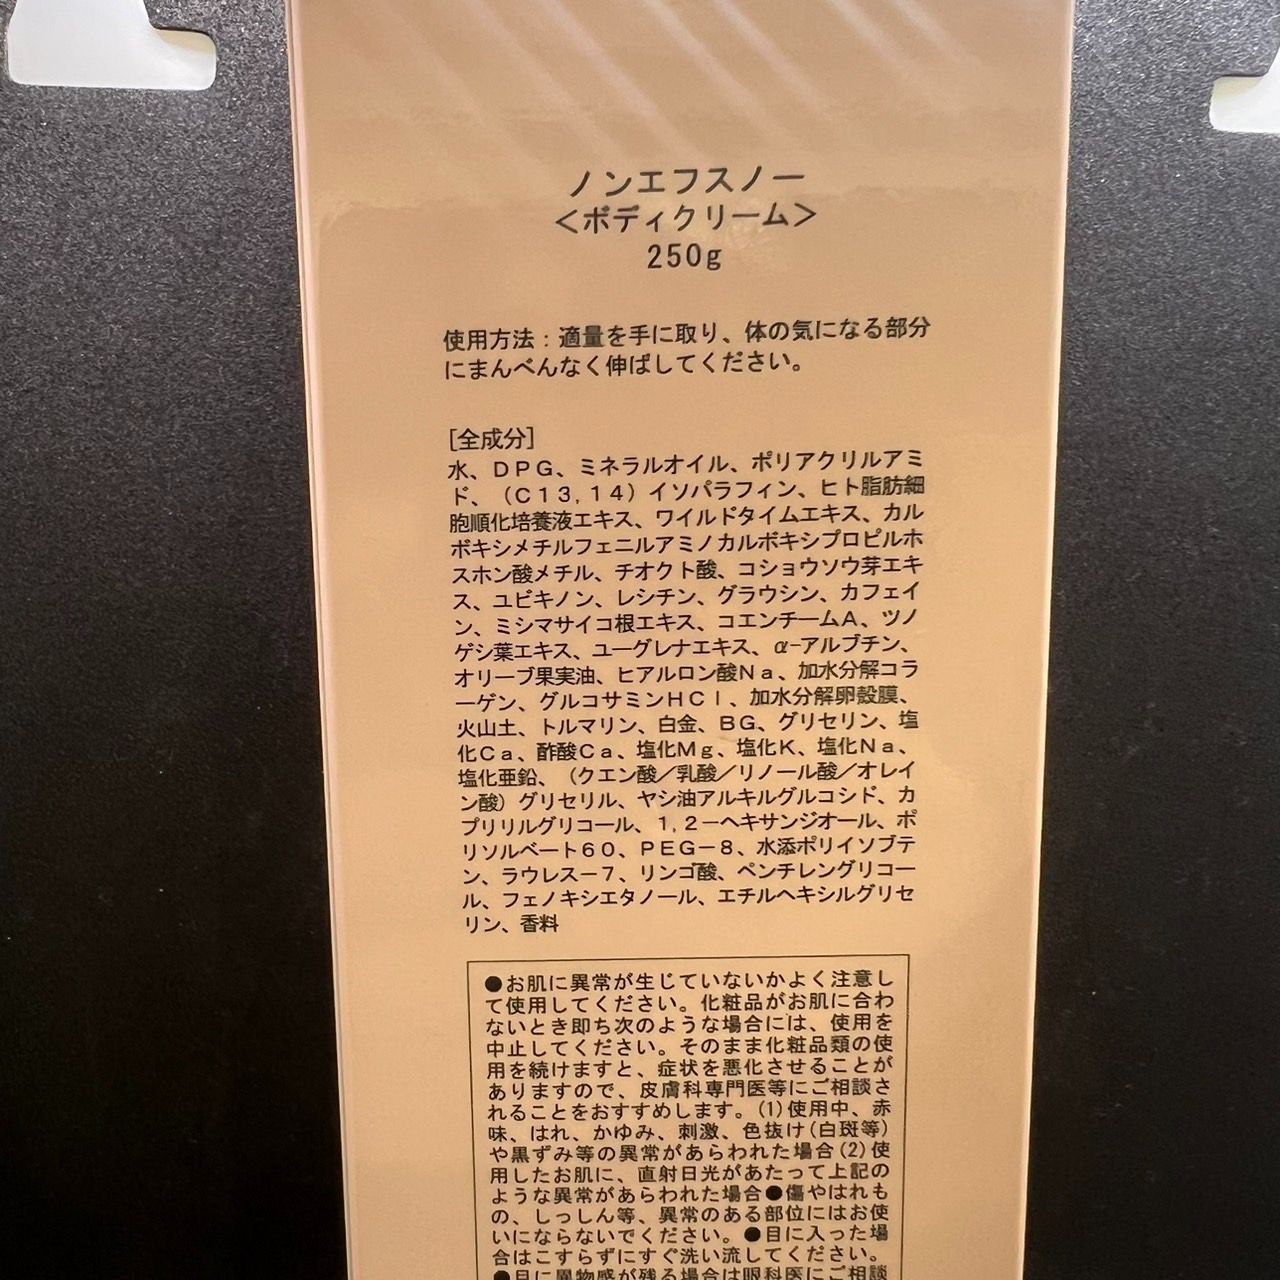 ノンエフスノー
＜ボディクリーム＞
250g
使用方法：適量を手に取り、体の気になる部分
にまんべんなく伸ばしてください。
[全成分]
水、ＤＰＧ、ミネラルオイル、ポリアクリルアミ
ド、（Ｃ１３,１４）イソパラフィン、ヒト脂肪細
胞順化培養液エキス、ワイルドタイムエキス、カル
ボキシメチルフェニルアミノカルボキシプロピルホ
スホン酸メチル、チオクト酸、コショウソウ芽エキ
ス、ユビキノン、レシチン、グラウシン、カフェイ
ン、ミシマサイコ根エキス、コエンチームＡ、ツノ
ゲシ葉エキス、ユーグレナエキス、α-アルブチン、
オリーブ果実油、ヒアルロン酸Ｎａ、加水分解コラ
ーゲン、グルコサミンＨＣｌ、加水分解卵殻膜、
火山土、トルマリン、白金、ＢＧ、グリセリン、塩
化Ｃａ、酢酸Ｃａ、塩化Ｍｇ、塩化Ｋ、塩化Ｎａ、
塩化亜鉛、（クエン酸／乳酸／リノール酸／オレイ
ン酸）グリセリル、ヤシ油アルキルグルコシド、カ
プリリルグリコール、１,２－ヘキサンジオール、ポ
リソルベート６０、ＰＥＧ－８、水添ポリイソブテ
ン、ラウレス－７、リンゴ酸、ペンチレングリコー
ル、フェノキシエタノール、エチルヘキシルグリセ
リン、香料
●お肌に異常が生じていないかよく注意し
て使用してください。化粧品がお肌に合わ
ないとき即ち次のような場合には、使用を
中止してください。そのまま化粧品類の使
用を続けますと、症状を悪化させることが
ありますので、皮膚科専門医等にご相談さ
れることをおすすめします。(1)使用中、赤
味、はれ、かゆみ、刺激、色抜け(白斑等)
や黒ずみ等の異常があらわれた場合(2)使
用したお肌に、直射日光があたって上記の
ような異常があらわれた場合●傷やはれも
の、しっしん等、異常のある部位にはお使
いにならないでください。●目に入った場
合はこすらずにすぐ洗い流してください。
●目に異物感が残る場合は眼科医にご相談